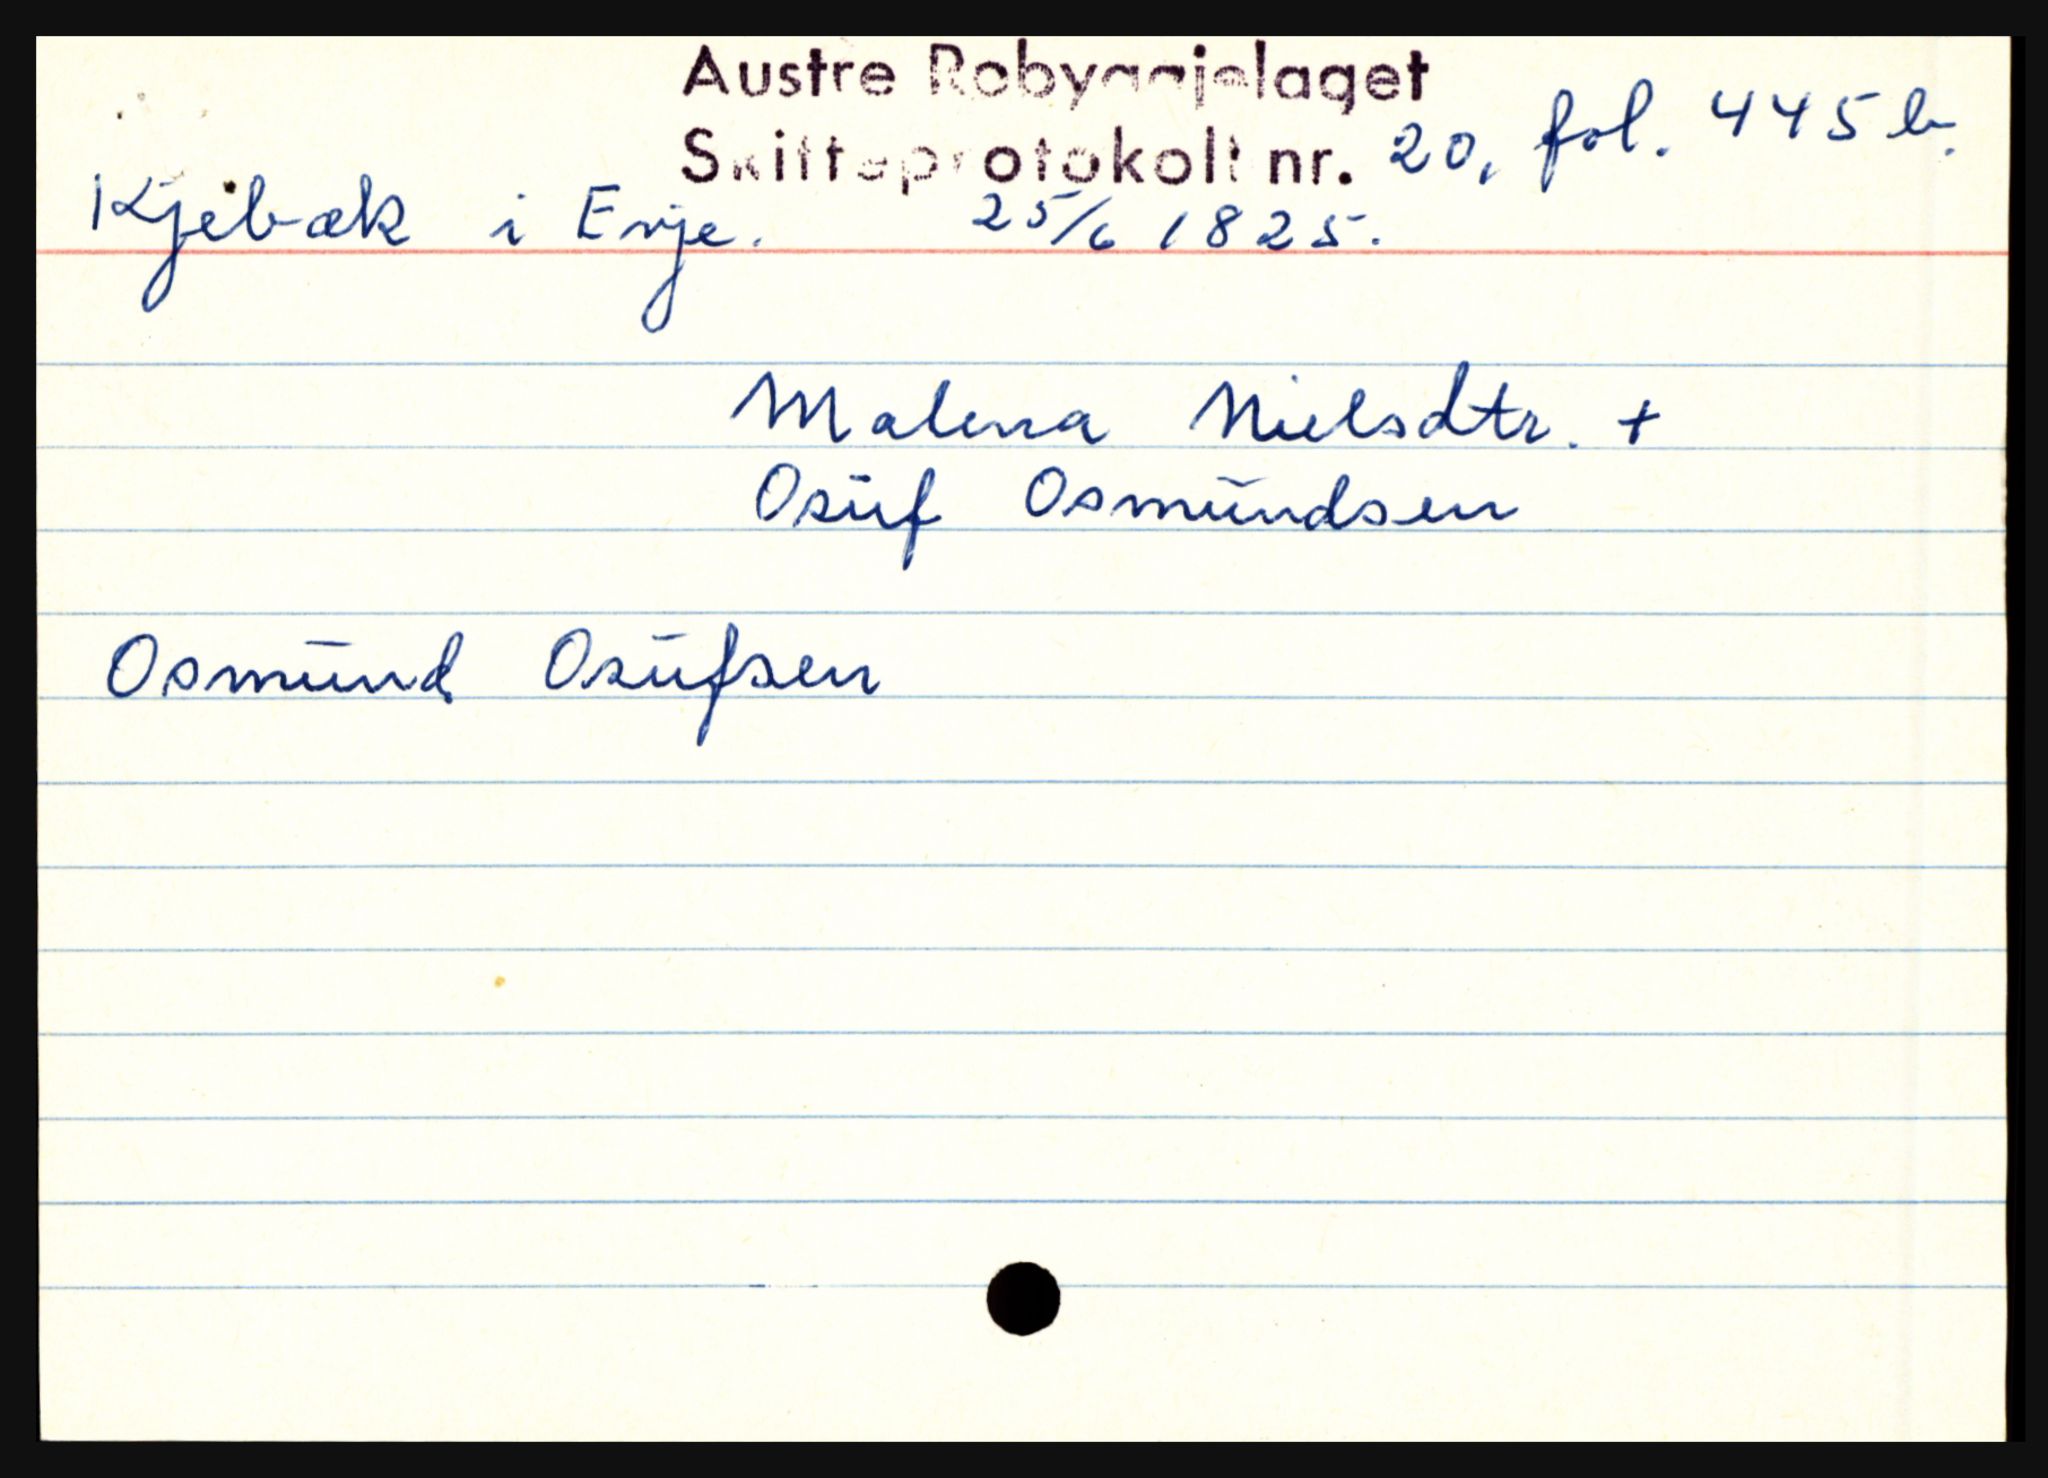 Austre Robyggjelaget
Skifteprotokoll nr. 20, fol. 445 b.
Kjebæk i Evje. 25/6 1825.
Malena Nielsdtr. +
Osuf Osmundsen
Osmund Osufsen